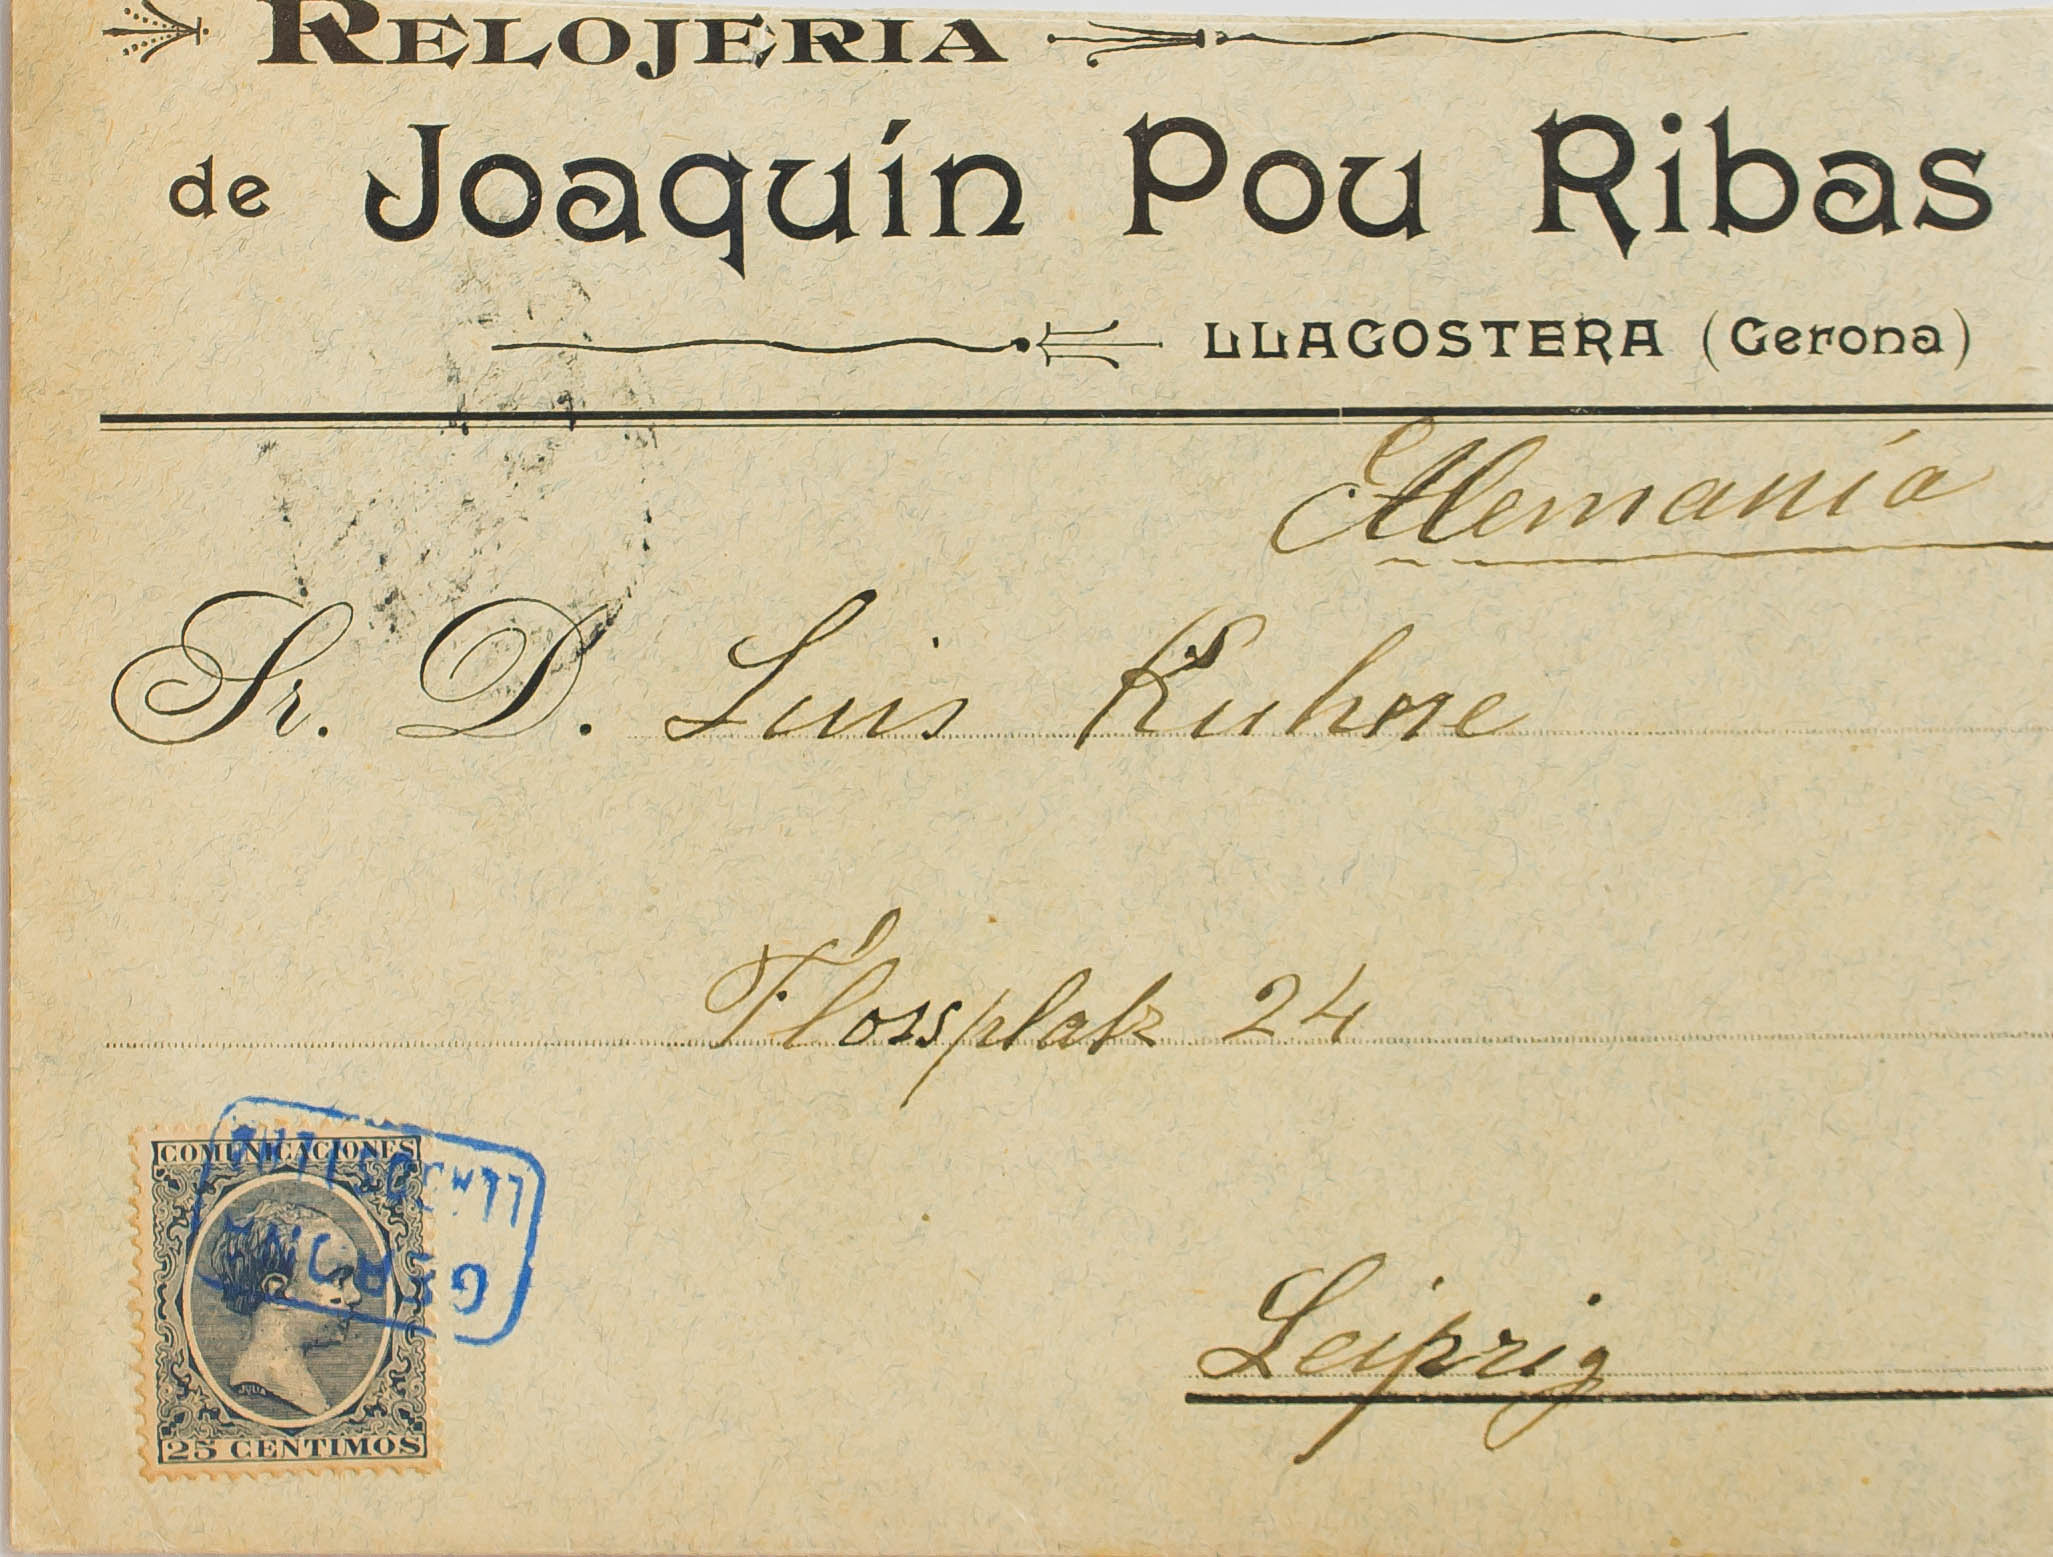 RELOJERIA
de Joaquín Pou Ribas
LLAGOSTERA (Gerona)
Alemania
Sr. D. Luis Kuhne
Flossplatz 24
COMUNICACIONES
LLAGOSTERA
GERONA
JULIA
25 CENTIMOS
Leipzig